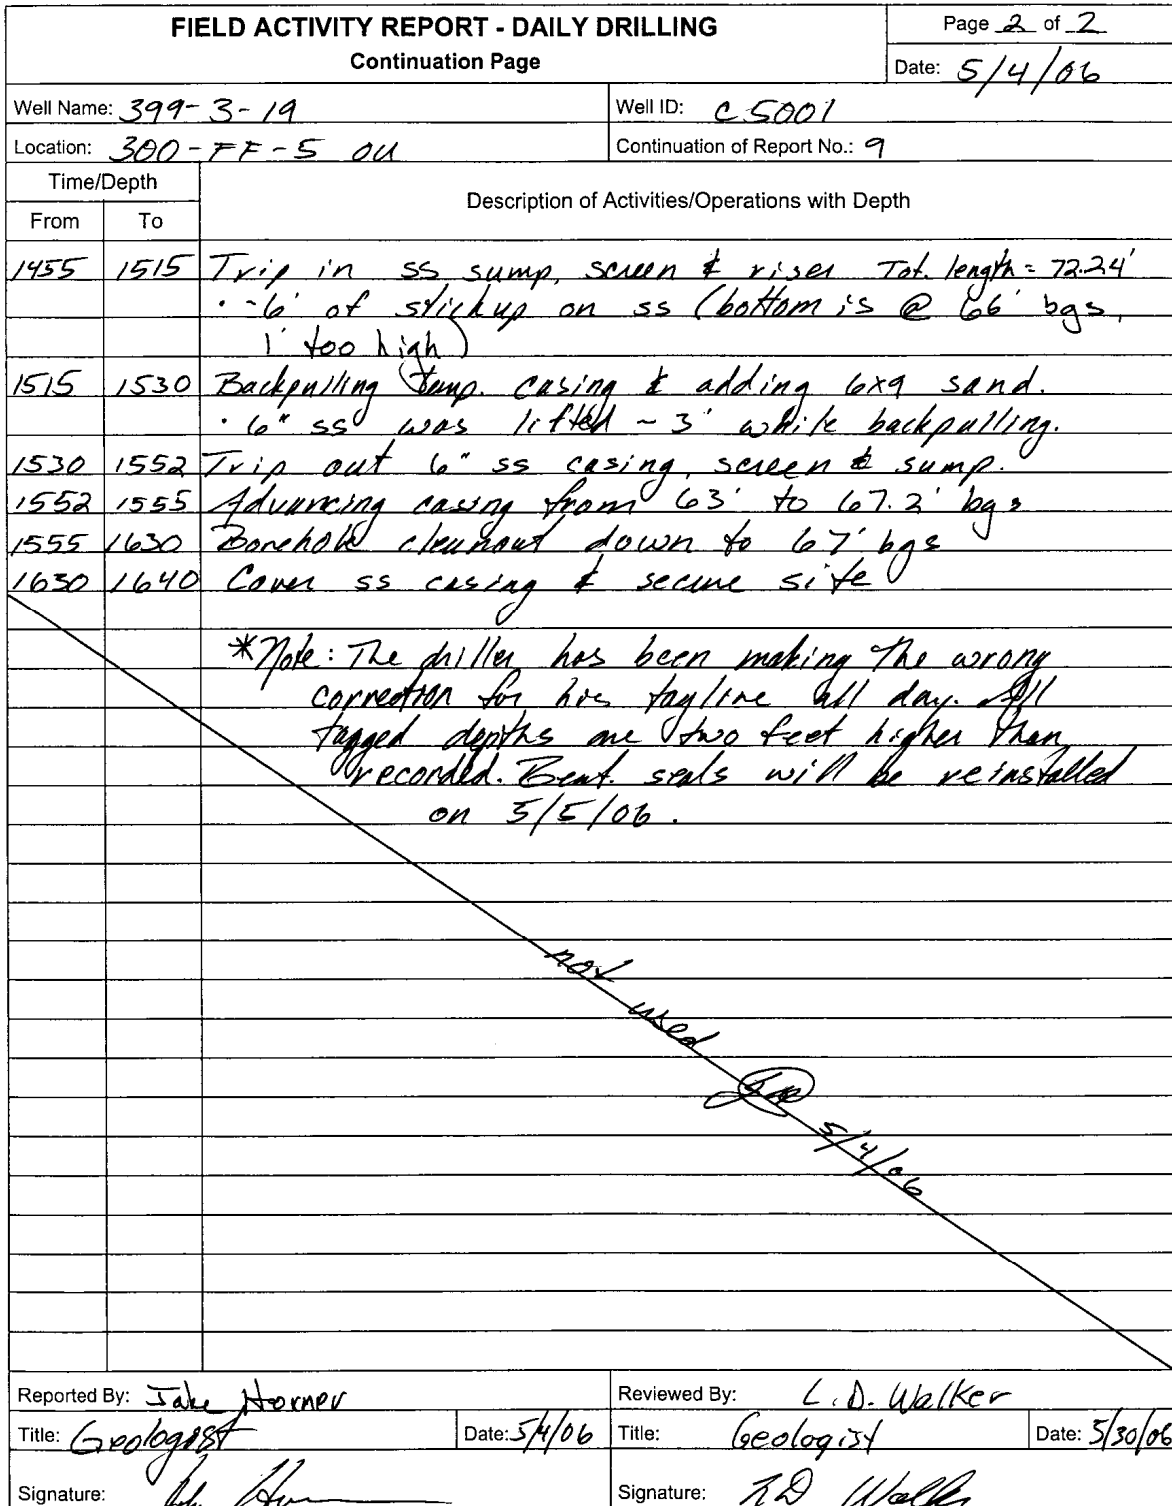 FIELD ACTIVITY REPORT - DAILY DRILLING
Continuation Page
Page 2 of 2
Date: 5/4/06
Well Name: 399-3-19
Well ID: C5001
Location: 300-FF-5 OU
Continuation of Report No.: 9
Time/Depth
From To
Description of Activities/Operations with Depth
1455 1515 Trip in ss sump, screen & riser Tot. length = 72.24'
· ~6' of stickup on ss (bottom is @ 66' bgs,
1' too high)
1515 1530 Backpulling temp. casing & adding 6x9 sand.
· 6" ss was lifted ~ 3' while backpulling.
1530 1552 Trip out 6" ss casing, screen & sump.
1552 1555 Advancing casing from 63' to 67.2' bgs
1555 1630 Borehole cleanout down to 67' bgs
1630 1640 Cover ss casing & secure site
*Note: The driller has been making the wrong
correction for his tagline all day. All
tagged depths are two feet higher than
recorded. Bent. seals will be reinstalled
on 5/5/06.
not used
5/4/06
Reported By: Jake Horner
Reviewed By: L.D. Walker
Title: Geologist Date: 5/4/06
Title: Geologist Date: 5/30/06
Signature:
Signature: LD Walker